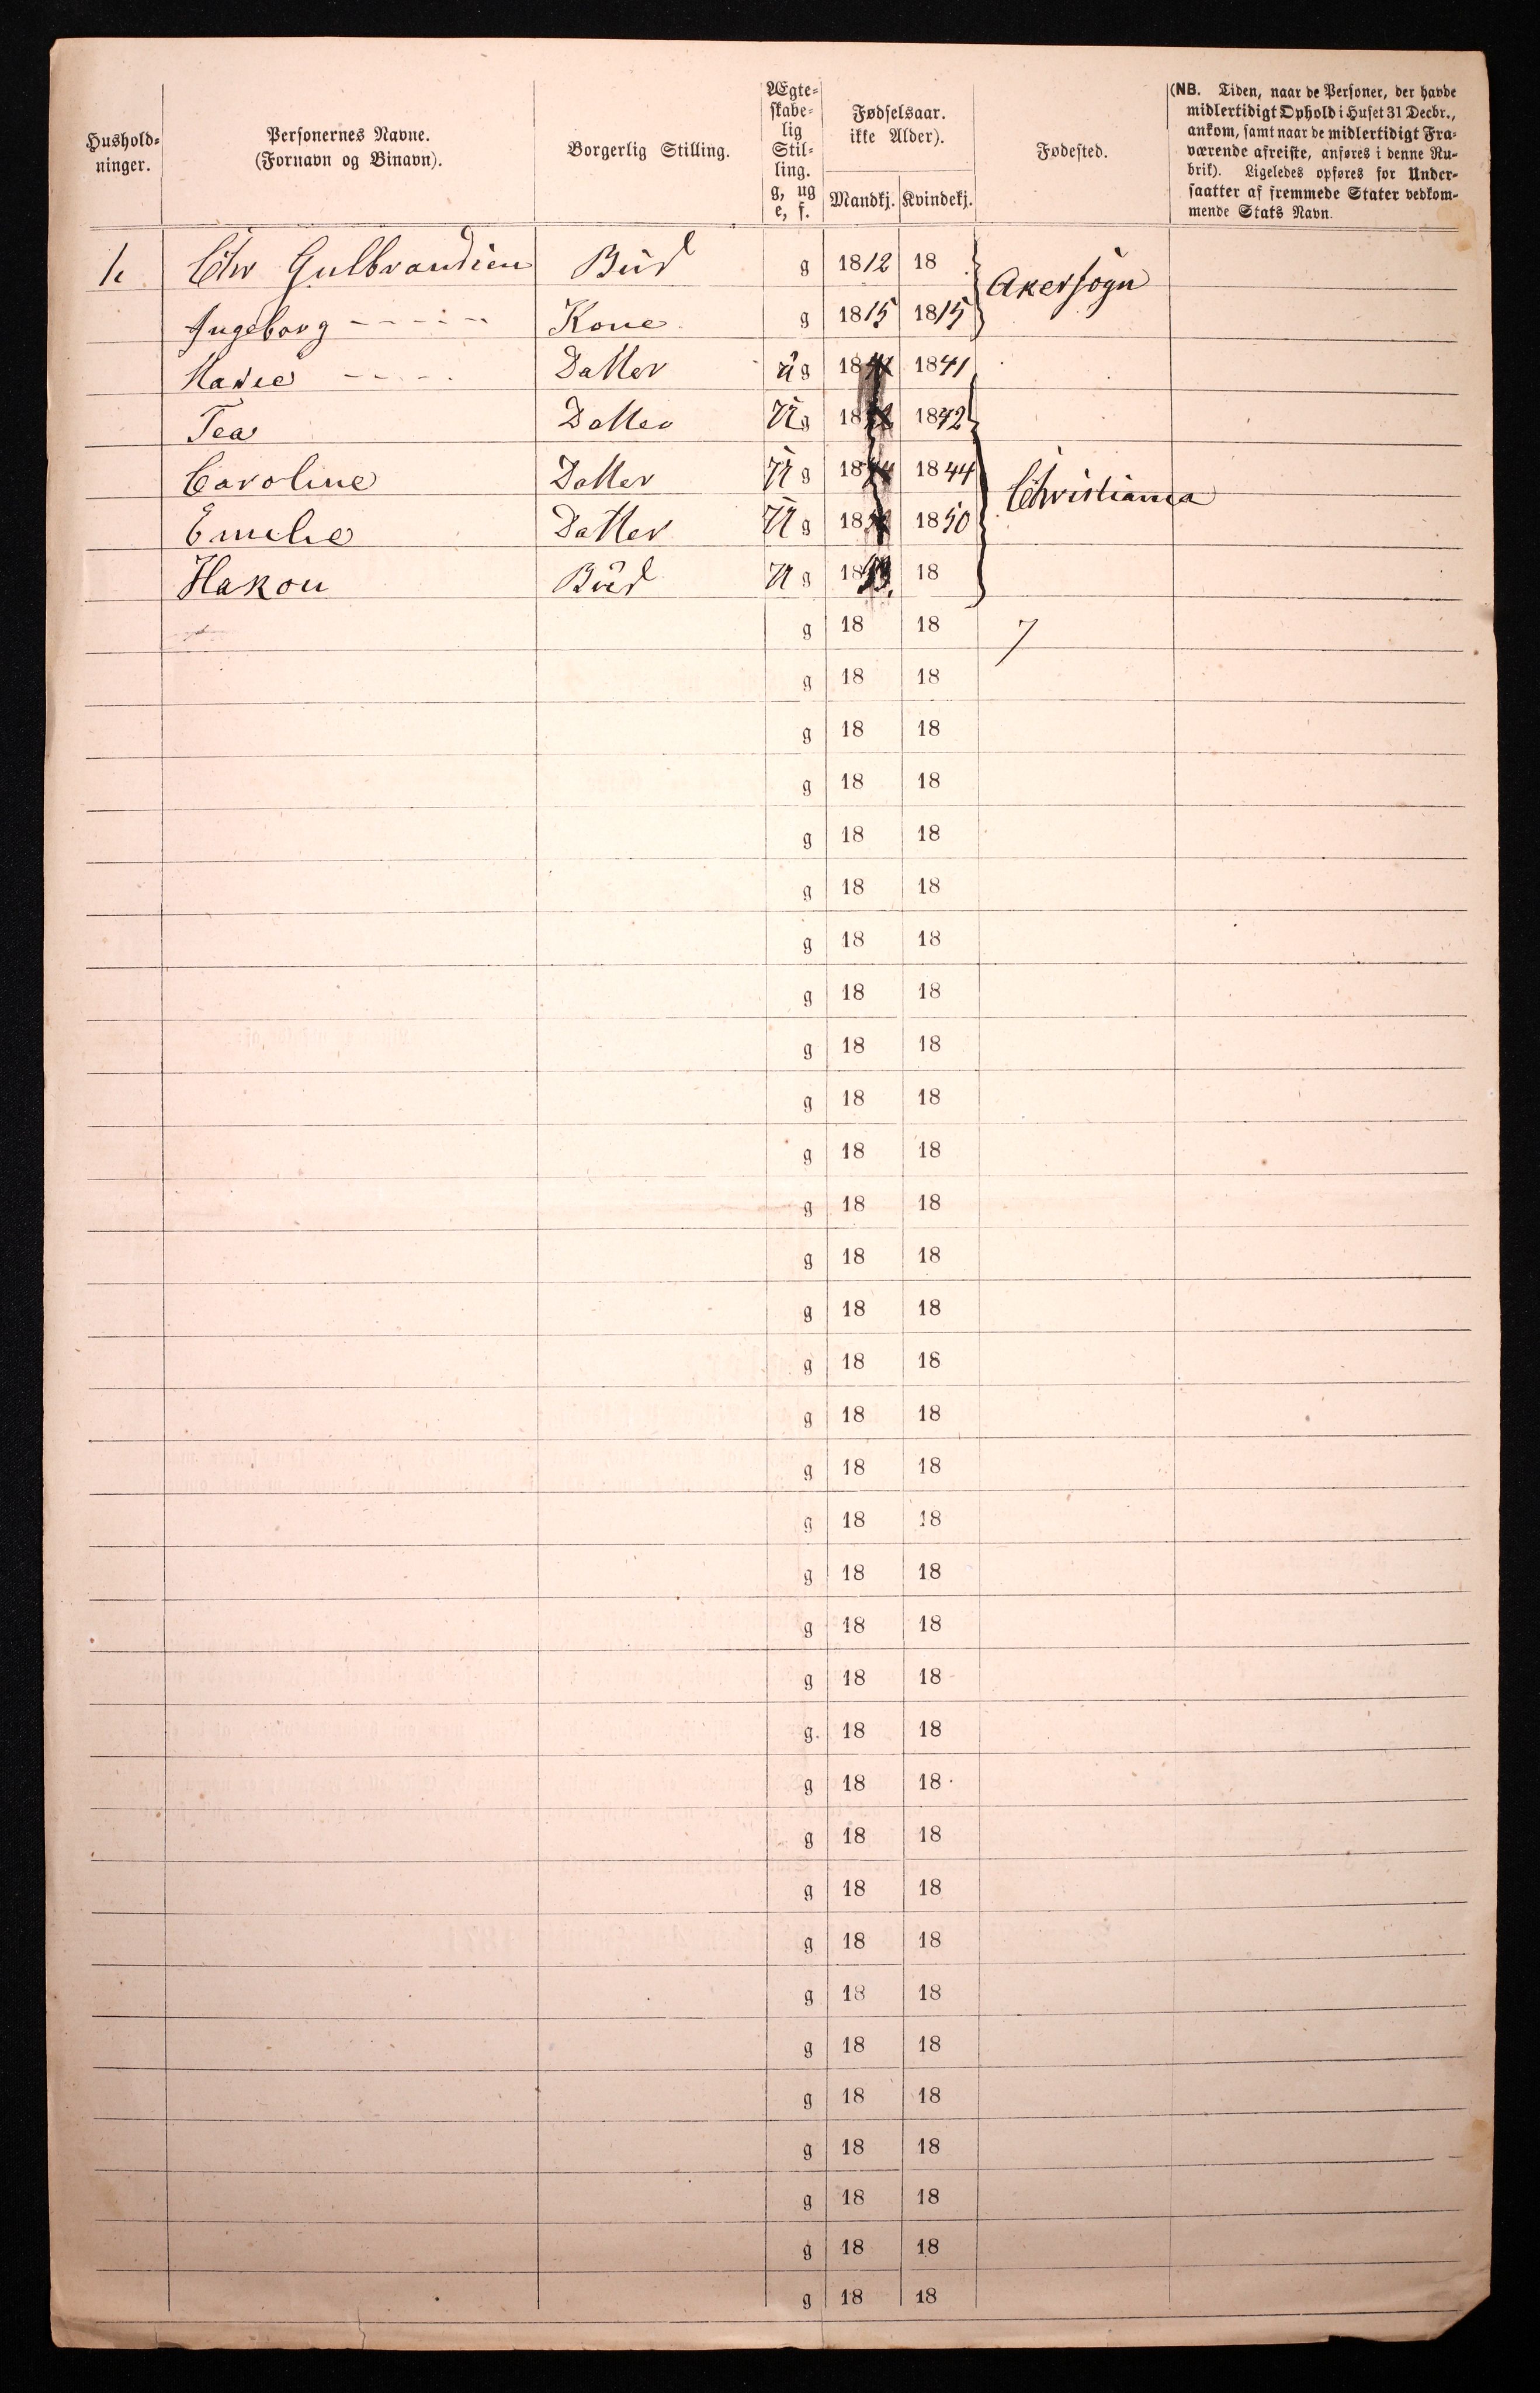 Hushold-
ninger.
Personernes Navne.
(Fornavn og Binavn).
Borgerlig Stilling.
Ægte-
skabe-
lig
Stil-
ling.
g, ug
e, f.
Fødselsaar.
ikke Alder).
Mandkj. Kvindekj.
Fødested.
(NB. Tiden, naar de Personer, der havde
midlertidigt Ophold i Huset 31 Decbr.,
ankom, samt naar de midlertidigt Fra-
værende afreiste, anføres i denne Ru-
brik). Ligeledes opføres for Under-
saatter af fremmede Stater vedkom-
mende Stats Navn.
Chr Gulbrandsen Büd g 1812 18 Akersogn
Ingeborg - - - - - Kone g 1815 1815
Marie - - - - Datter üg 18 1841
Tea Datter Üg 18 1842
Caroline Datter Üg 18 1844 Christiania
Emelie Datter Üg 18 1850
Hakon Büd Ug 18 18
g 18 18 7
g 18 18
g 18 18
g 18 18
g 18 18
g 18 18
g 18 18
g 18 18
g 18 18
g 18 18
g 18 18
g 18 18
g 18 18
g 18 18
g 18 18
g 18 18
g 18 18
g 18 18
g 18 18
g 18 18
g 18 18
g. 18 18
g 18 18
g 18 18
g 18 18
g 18 18
g 18 18
g 18 18
g 18 18
g 18 18
g 18 18
g 18 18
g 18 18